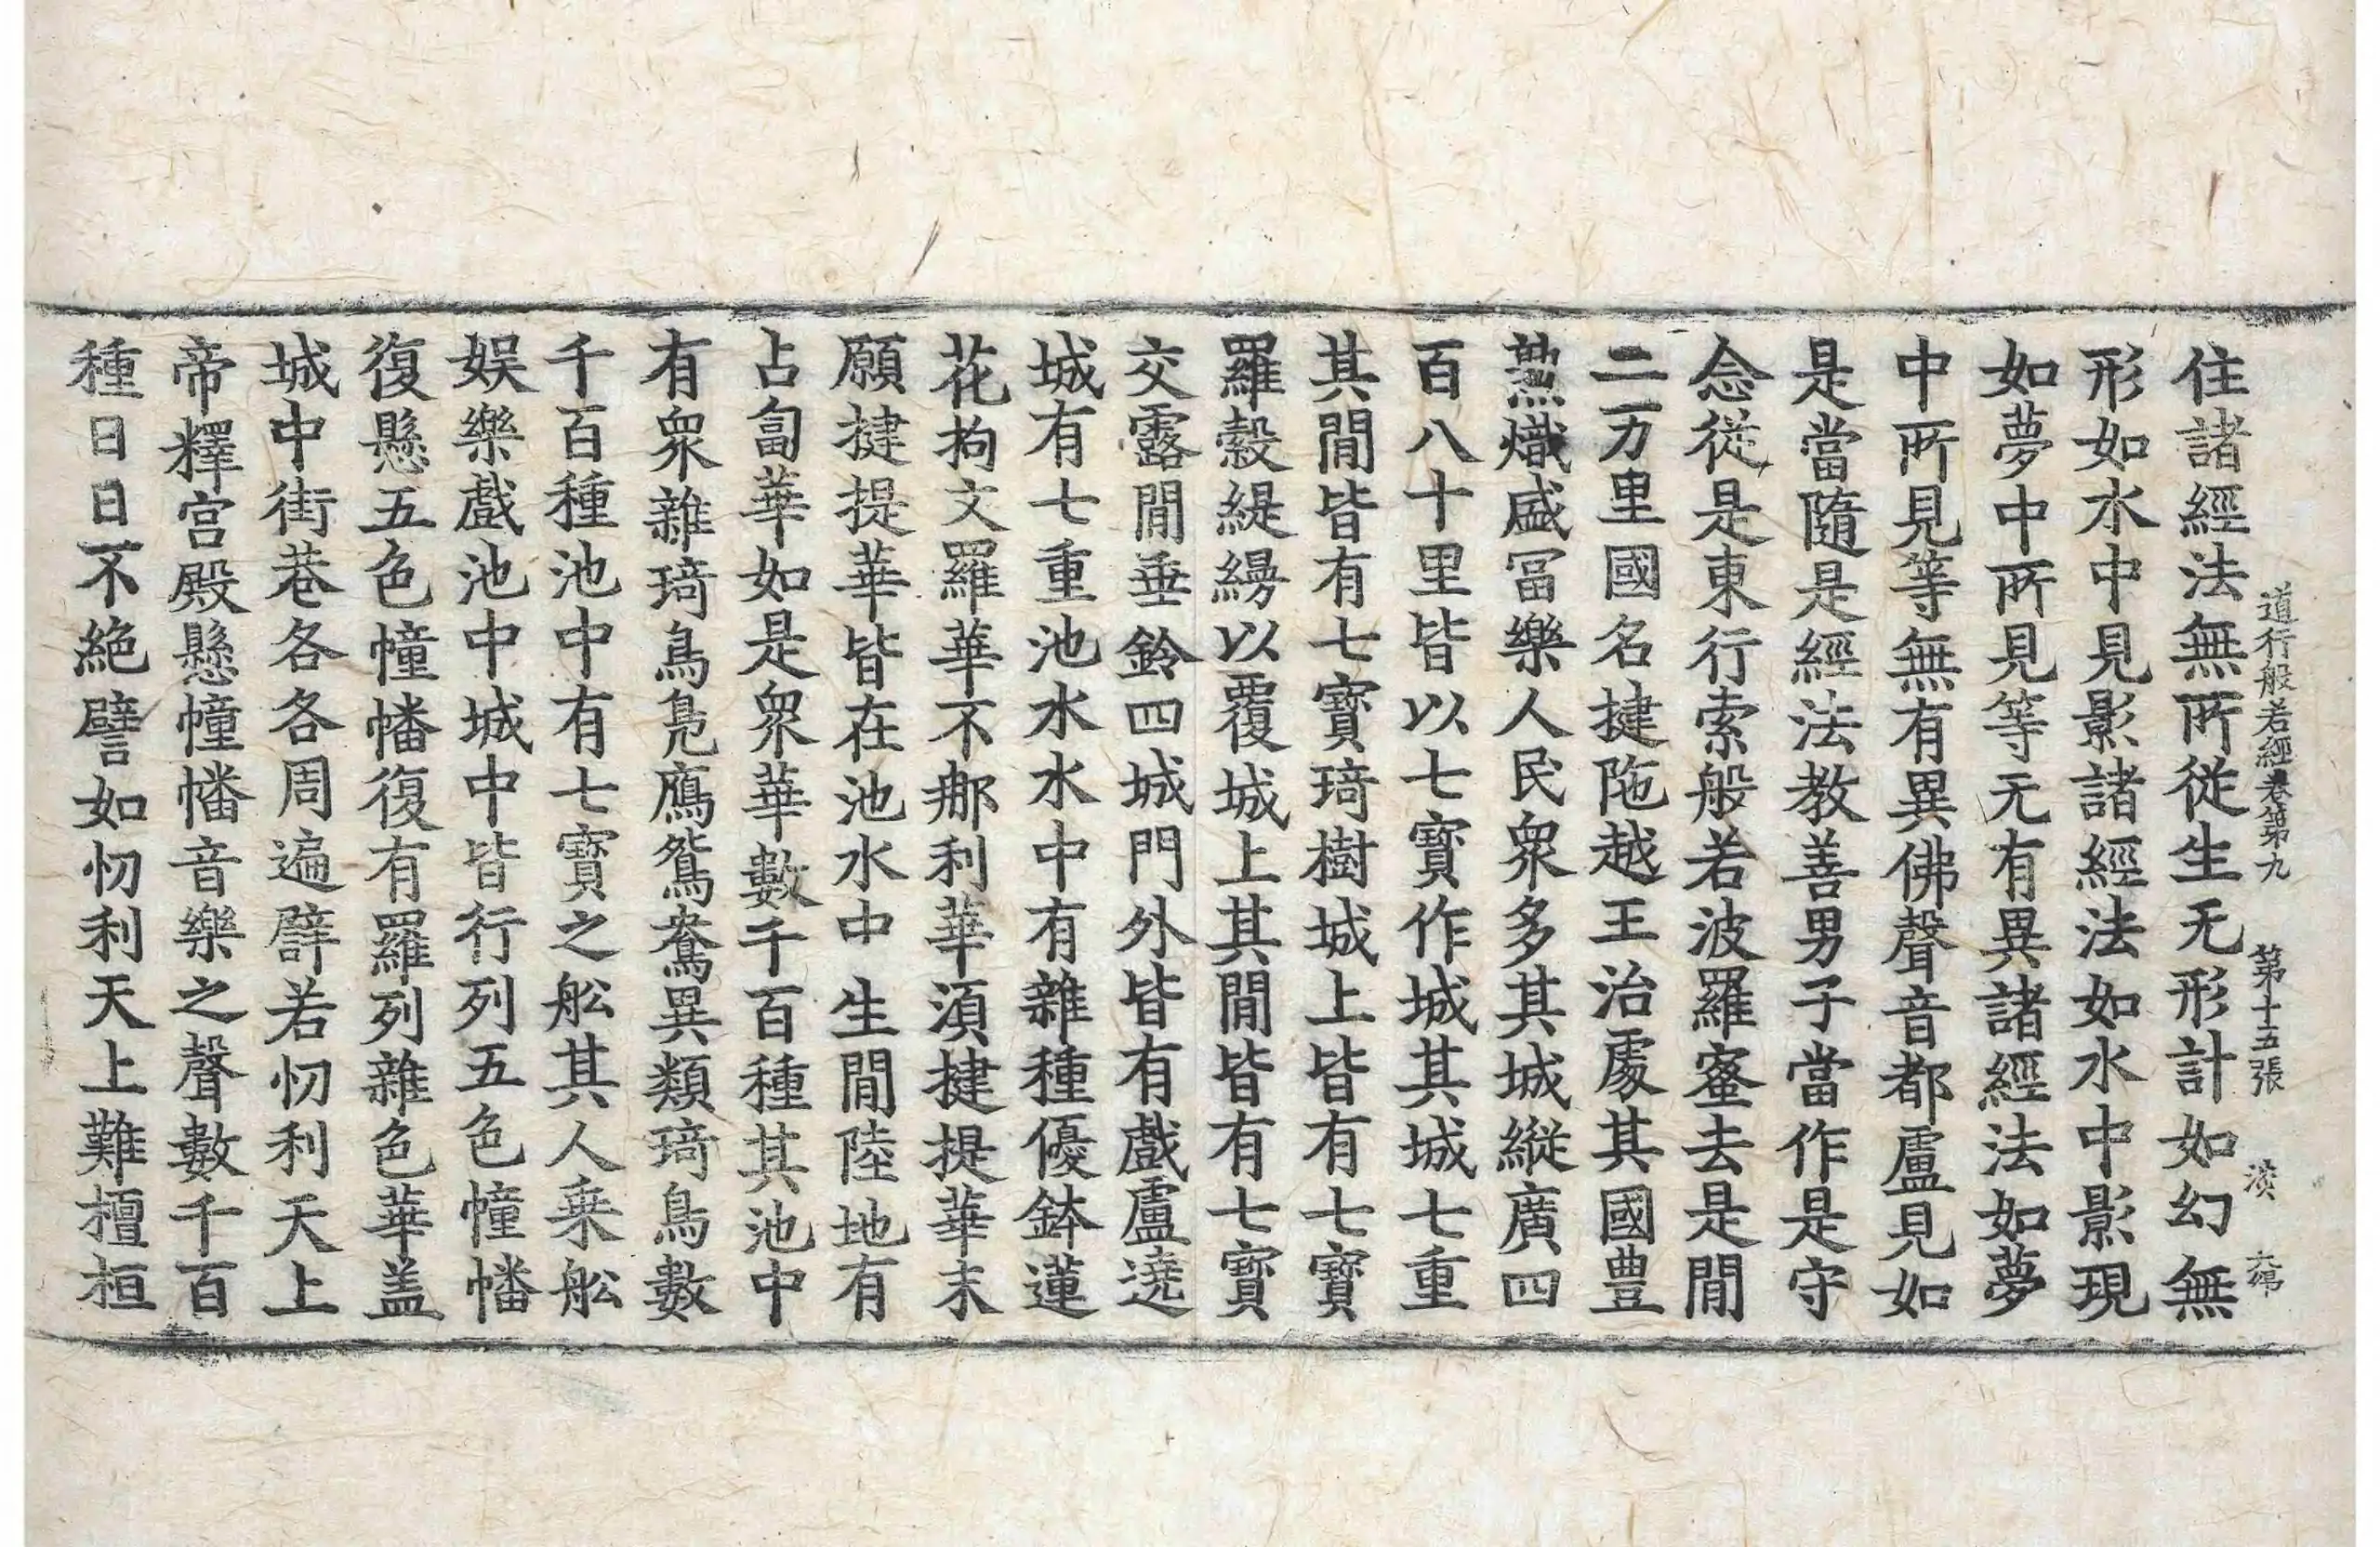 道行般若經卷第九 第十五張 淡
住諸經法無所從生无形計如幻無
形如水中見影諸經法如水中影現
如夢中所見等无有異諸經法如夢
中所見等無有異佛聲音都盧見如
是當隨是經法教善男子當作是守
念從是東行索般若波羅蜜去是間
二万里國名揵陁越王治處其國豊
熟熾盛冨樂人民衆多其城縱廣四
百八十里皆以七寶作城其城七重
其間皆有七寶琦樹城上皆有七寶
羅縠緹縵以覆城上其間皆有七寶
交露間垂鈴四城門外皆有戲盧遶
城有七重池水水中有雜種優鉢蓮
花拘文羅華不那利華湏揵提華末
願揵提華皆在池水中生間陸地有
占匐華如是衆華數千百種其池中
有衆雜琦鳥鳧鴈鴛鴦異類琦鳥數
千百種池中有七寶之舩其人乘舩
娱樂戲池中城中皆行列五色幢幡
復懸五色幢幡復有羅列雜色華盖
城中街巷各各周遍譬若忉利天上
帝釋宫殿懸幢幡音樂之聲數千百
種日日不絶譬如忉利天上難檀桓